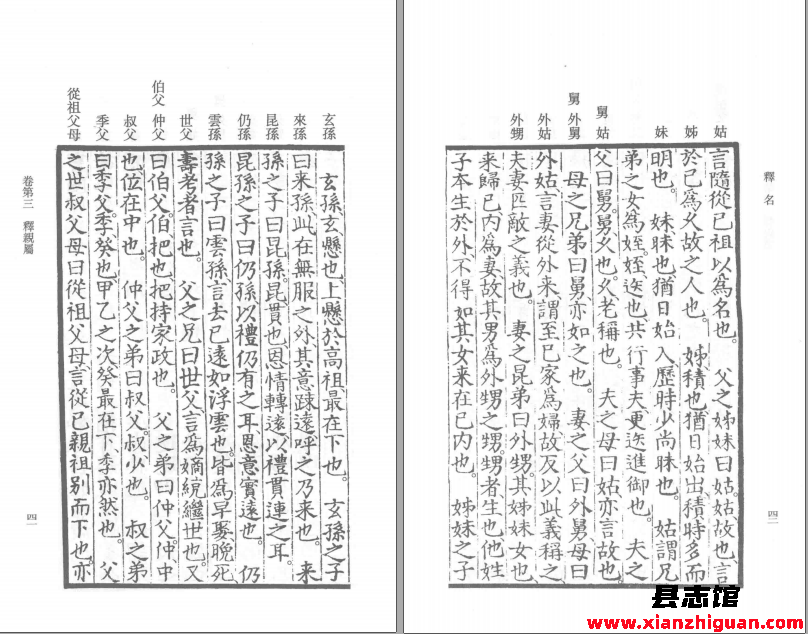 玄孫
來孫
昆孫
仍孫
雲孫
世父
伯父 仲父
叔父
季父
從祖父母
玄孫玄懸也。上懸於高祖最在下也。 玄孫之子
曰来孫此在無服之外其意踈遠呼之乃来也。 来
孫之子曰昆孫。昆貫也恩情轉遠以禮貫連之耳。
昆孫之子曰仍孫以禮仍有之耳恩意實遠也。 仍
孫之子曰雲孫言去已遠如浮雲也。皆爲早娶晚死
壽考者言也。 父之兄曰世父言爲嫡統繼世也。又
曰伯父。伯把也。把持家政也。 父之弟曰仲父。仲中
也。位在中也。 仲父之弟曰叔父。叔少也。 叔之弟
曰季父。季癸也。甲乙之次癸最在下。季亦然也。 父
之世叔父母曰從祖父母言從已親祖別而下也。亦
卷第三 釋親屬
四一
釋名
姑
姊
妹
舅姑
舅 外舅
外姑
外甥
言隨從已祖以爲名也。 父之姊妹曰姑。姑故也。言
於已爲乆故之人也。 姊積也猶日始出積時多而
明也。 妹昧也猶日始入歷時少尚昧也。 姑謂兄
弟之女爲姪。姪迭也。共行事夫更迭進御也。 夫之
父曰舅。舅乆也。乆老稱也。 夫之母曰姑亦言故也。
母之兄弟曰舅亦如之也。 妻之父曰外舅母曰
外姑。言妻從外來謂至已家爲婦故反以此義稱之
夫妻匹敵之義也。 妻之昆弟曰外甥。其姊妹女也
来歸已内爲妻故其男爲外甥之甥。甥者生也他姓
子本生於外不得如其女来在已内也。 姊妹之子
四二
县志馆
www.xianzhiguan.com